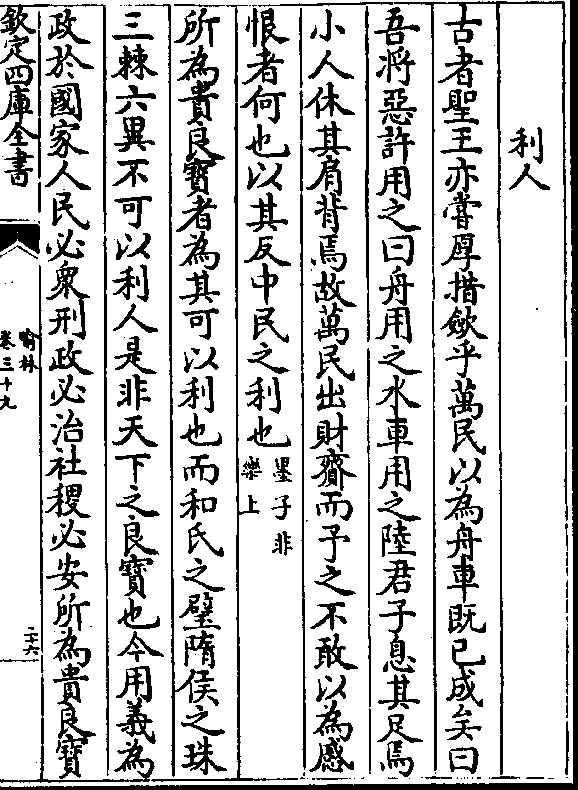 利人
古者聖王亦嘗厚措斂乎萬民以為舟車既已成矣曰
吾將惡許用之曰舟用之水車用之陸君子息其足焉
小人休其肩背焉故萬民出財齎而予之不敢以為慼
恨者何也以其反中民之利也墨子非
樂上
所為貴良寶者為其可以利也而和氏之璧隋侯之珠
三棘六異不可以利人是非天下之良寶也今用義為
政於國家人民必衆刑政必治社稷必安所為貴良寶
欽定四庫全書
喻林
卷三十九
二十六